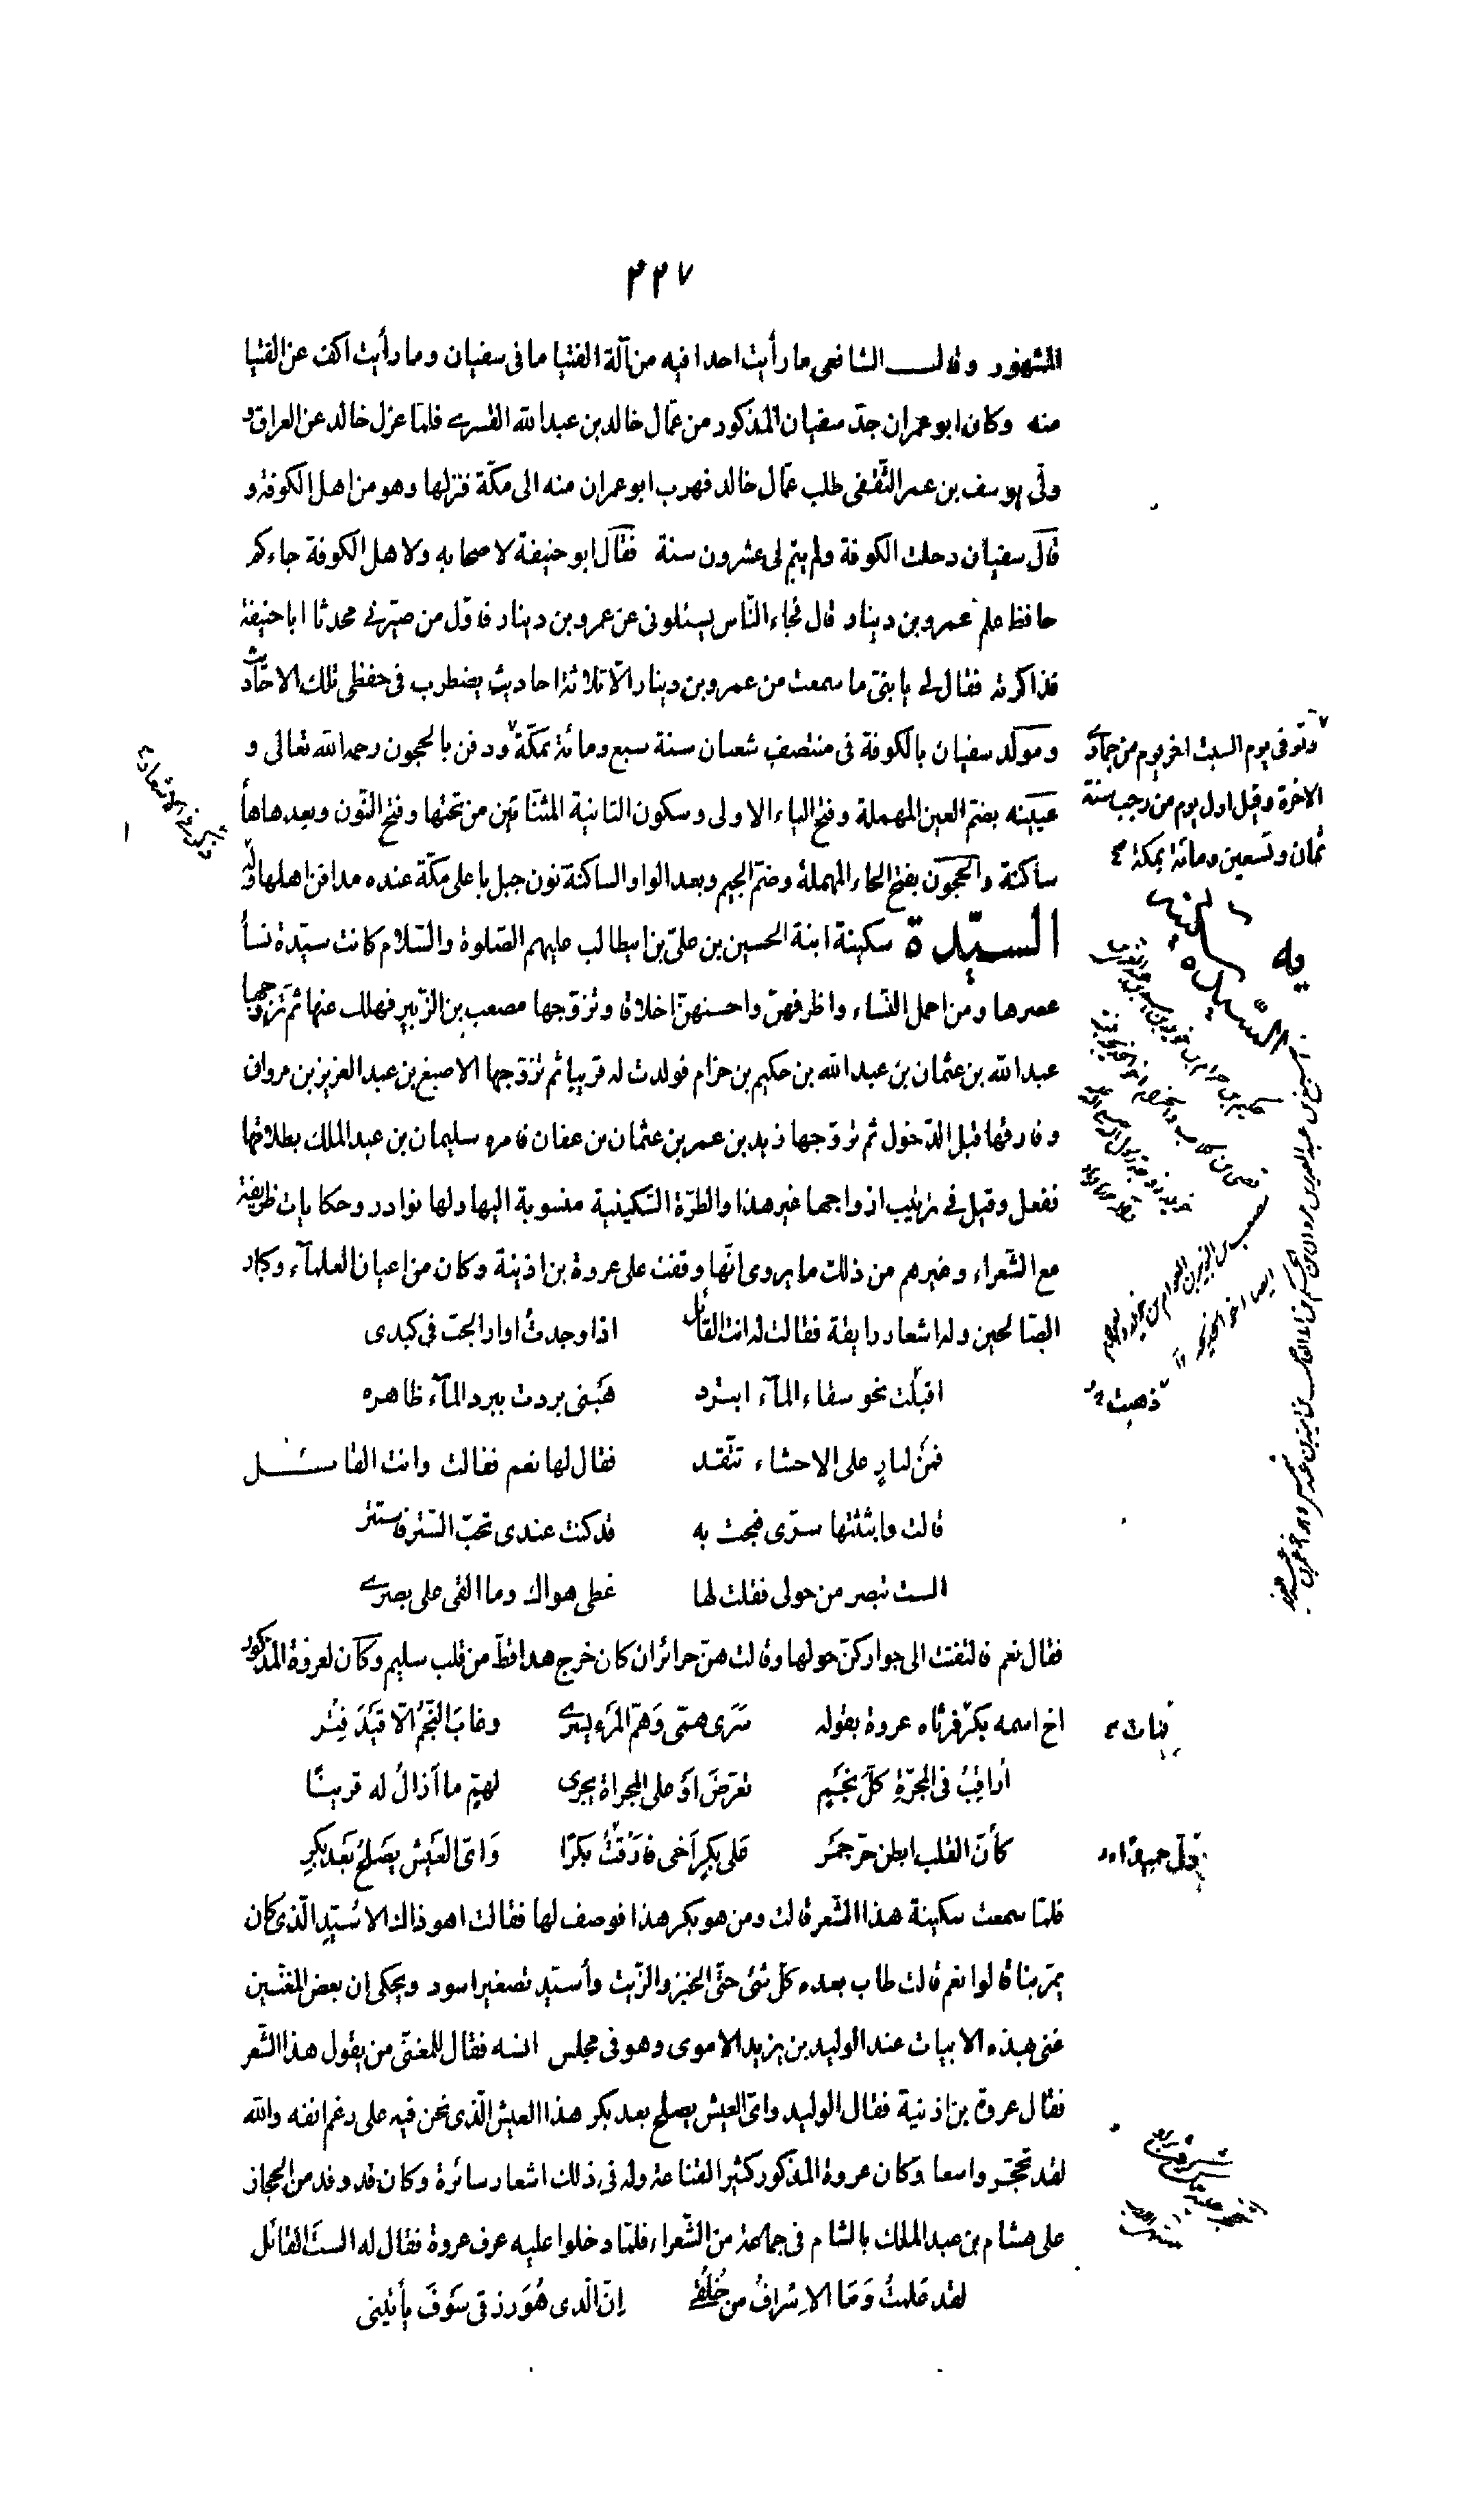 ٢٢٧
المشهور وقال الشافعى ما رأيت احدا فيه من آلة الفتيا ما فى سفيان وما رأيت اكف عن الفتيا
منه وكان ابو عمران جدّ سفيان المذكور من عمّال خالد بن عبد الله القسرى فلمّا عزل خالد عن العراق و
ولّى يوسف بن عمر الثّقفى طلب عمّال خالد فهرب ابو عمران منه الى مكّة فنزلها وهو من اهل الكوفة و
قال سفيان دخلت الكوفة ولم يتم لى عشرون سنة فقال ابو حنيفة لاصحابه ولاهل الكوفة جاءكم
حافظ علم عمرو بن دينار قال فجاء النّاس يسئلونى عن عمرو بن دينار فاوّل من صيّرنى محدثا ابا حنيفة
فذاكرته فقال لى يا بنىّ ما سمعت من عمرو بن دينار الّا ثلاثة احاديث يضطرب فى حفظى تلك الاحاديث
ومولد سفيان بالكوفة فى منتصف شعبان سنة سبع ومائة بمكّة ودفن بالحجون رحمه الله تعالى و
وتوفى يوم السبت اخر يوم من جمادى
الاخرة وقيل اول يوم من رجب سنة
ثمان وتسعين ومائة بمكة
عيينه بضمّ العين المهملة وفتح الياء الاولى وسكون الثانية المثنّاتين من تحتها وفتح النّون وبعدها هاأ
ساكنة والحجون بفتح الحاء المهملة وضمّ الجيم وبعد الواو الساكنة نون جبل باعلى مكّة عنده مدافن اهلها
السيّدة سكينة ابنة الحسين بن علىّ بن ابيطالب عليهم الصّلوة والسّلام كانت سيّدة نسأ
السيده سكينه
عصرها ومن اجمل النّساء واظرفهنّ واحسنهنّ اخلاق وتزوّجها مصعب بن الزّبير فهلك عنها ثمّ تزوجها
عبد الله بن عثمان بن عبد الله بن حكيم بن حزام فولدت له قريبا ثم تزوّجها الاصبغ بن عبد العزيز بن مروان
وفارقها قبل الدّخول ثم تزوّجها زيد بن عمر بن عثمان بن عفان فامره سليمان بن عبد الملك بطلاقها
ففعل وقيل فى ترتيب ازواجها غير هذا والطرّة السّكينية منسوبة اليها ولها نوادر وحكايات ظريفة
مع الشّعراء وغيرهم من ذلك ما يروى انّها وقفت على عروة بن اذينة وكان من اعيان العلمآء وكبار
الصّالحين وله اشعار رايقة فقالت له انت القائل اذا وجدتُ اوار الحبّ فى كبدى
اقبلت نحو سقاء المآء ابترد هَبنى بردت ببرد المآء ظاهره
ذهبت
فمَن لنارٍ على الاحشاء تتّقد فقال لها نعم فقالت وانت القائل
قالت وابثثتها سرّى فبحت به قد كنت عندى تحبّ السّتر فاستتر
الست تبصر من حولى فقلت لها غطى هواك وما القى على بصرى
فقال نعم فالتفتت الى جوار كنّ حولها وقالت هنّ حرائر ان كان خرج هذا قطّ من قلب سليم وكان لعروة المذكور
اخ اسمه بكر فرثاه عروة بقوله سَرَى همّى وَهمّ المَرءِ يسرى وغابَ النّجمُ الّا قَيدَ فِتر
اُراقِبُ فى المَجرّةِ كلّ نَجَيم تعَرّضَ اَو على المجراة يجرى لهمٍّ ما اَزالُ له قرينًا
كأنّ القلب ابطن حرّ جمَر عَلى بكرٍ اَخى فارَقتُ بكرًا وَاىّ العَيش يَصلحُ بَعد بَكرِ
فلمّا سمعت سكينة هذا الشّعر قالت ومن هو بكر هذا فوصف لها فقالت اهو ذاك الاسَيّد الّذى كان
يمرّ بنا قالوا نعم قالت طاب بعده كلّ شئ حتّى الخبز والزّيت وأسيّد تصغير اسود ويحكى ان بعض المغنّيين
غنى هذه الابيات عند الوليد بن يزيد الاموى وهو فى مجلس انسه فقال للمغنّى من يقول هذا الشّعر
فقال عروة بن اذينة فقال الوليد واىّ العيش يصلح بعد بكر هذا العيش الّذى نحن فيه على رغم انفه والله
لقد تحجّر واسعا وكان عروة المذكور كثير القناعة وله فى ذلك اشعار سائرة وكان قد وفد من الحجاز
على هشام بن عبد الملك بالشام فى جماعة من الشّعراء فلمّا دخلوا عليه عرف عروة فقال له الستَ القائل
لقد علمتُ وَمَا الاِشرافُ من خُلُقى اِنّ الّذى هُوَ رزقى سَوفَ يأتينى